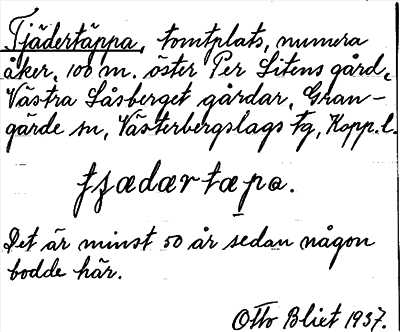 Tjädertäppa, tomtplats, numera
åker, 100 m. öster Per Litens gård,
Västra Låsberget gårdar, Gran-
gärde sn, Västerbergslags tg, Kopp. l.
tjædærtæpa.
Det är minst 50 år sedan någon
bodde här.
Otto Blixt 1937.